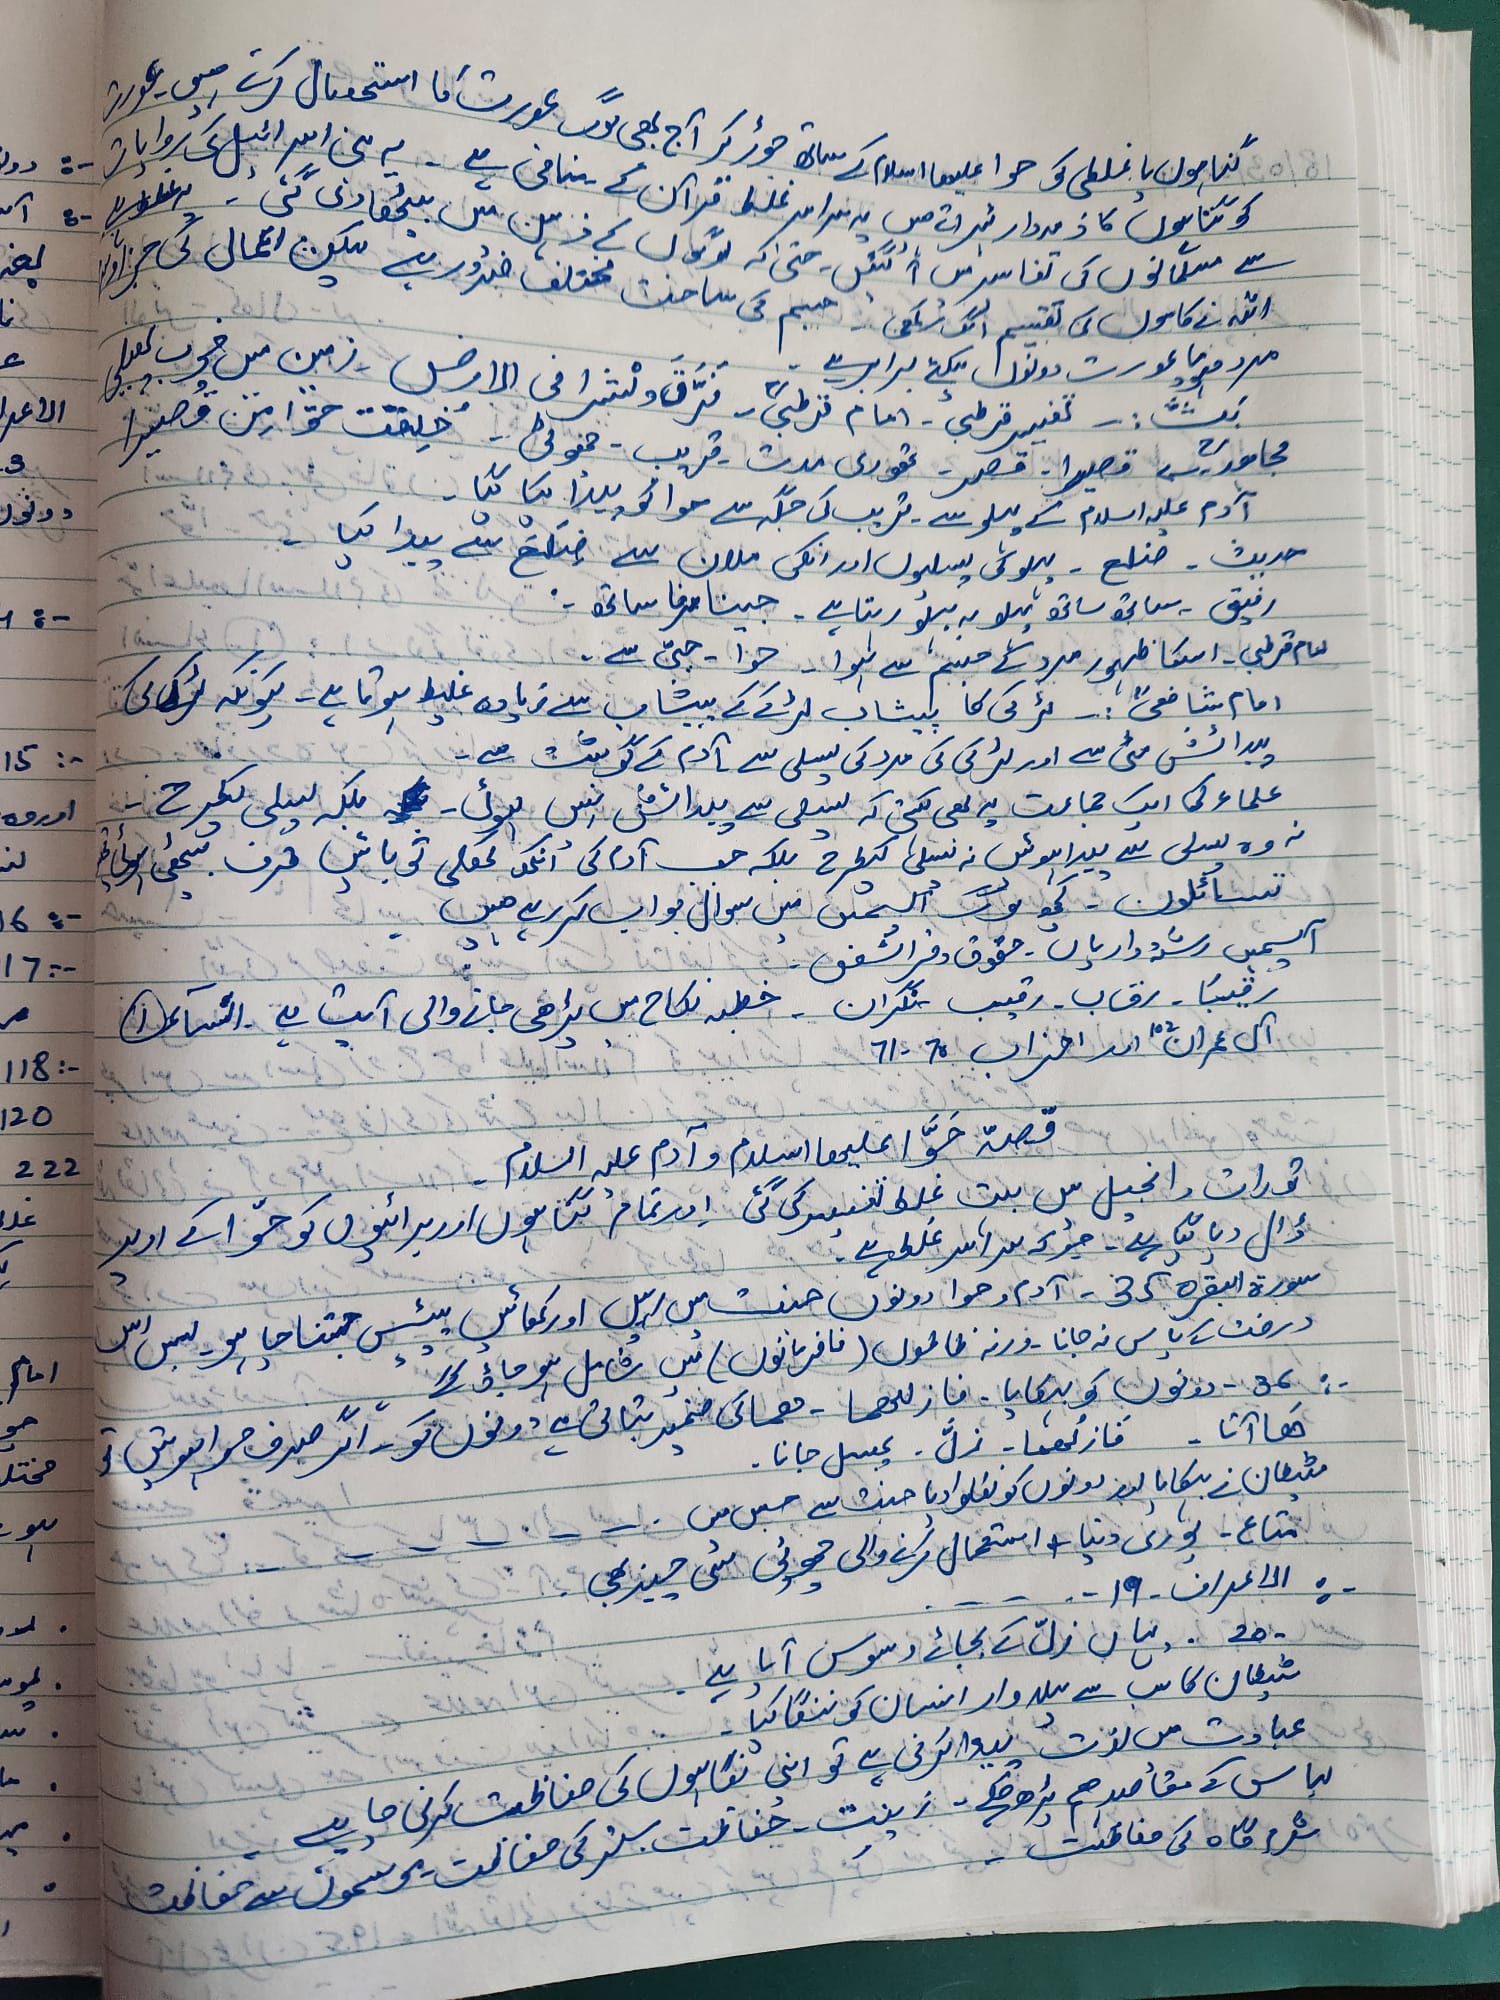 گناہوں یا غلطی کو حوا علیھا السلام کے ساتھ جوڑ کر آج بھی لوگ عورت کا استحصال کرتے ہیں۔ عورت
کو گناہوں کا ذمہ دار ٹہراتے ہیں یہ سراسر غلط قرآن کے منافی ہے۔ یہ بنی اسرائیل کی روایات
سے مسلمانوں کی تفاسیر میں آ گئیں۔ حتیٰ کہ لوگوں کے ذہن میں بیٹھا دی گئی۔
اللہ نے کاموں کی تقسیم الگ رکھی۔ جسم کی ساخت مختلف ضرور ہے لیکن اعمال کی جزا
مرد ہو یا عورت دونوں کیلئے برابر ہے۔
بَثَّ :۔ تفسیر قرطبی۔ امام قرطبیؒ۔ فَرَّقَ و نشر فی الارض۔ زمین میں خوب پھیلی
مجاہدؒ سے قصیرا۔ قصر۔ تھوڑی مدت۔ قریب۔ چھوٹی۔ خُلِقَت حوّا من قصیرا
آدم علیہ السلام کے پہلو سے۔ قریب کی جگہ سے حوا کو پیدا کیا گیا۔
حدیث۔ ضلع۔ پہلو کی پسلیوں اور انکی ملان سے ضِلَع سے پیدا کیا۔
رفیق۔ ساتھ ساتھ پہلو بہ پہلو رہتا ہے۔ جینا مرنا ساتھ۔
امام قرطبی۔ اسکا ظہور مرد کے جسم سے ہوا۔ حوا۔ حیّ سے۔
امام شافعیؒ :۔ لڑکی کا پیشاب لڑکے کے پیشاب سے زیادہ غلیظ ہوتا ہے۔ کیونکہ لڑکے کی
پیدائش مٹی سے اور لڑکی کی مرد کی پسلی سے یا آدم کے گوشت سے۔
علماء کی ایک جماعت یہ بھی کہتی کہ پسلی سے پیدائش نہیں ہوئی۔ بلکہ پسلی کیطرح۔
نہ وہ پسلی سے پیدا ہوئیں نہ پسلی کیطرح بلکہ جب آدم کی آنکھ کھلی تو بائیں طرف بیٹھی ہوئی تھیں
تساءَلون۔ کچھ لوگ آپسمیں میں سوال جواب کر رہے ہیں۔
آپسمیں رشتہ داریاں۔ حقوق و فرائض۔
رقیبًا۔ رقاب۔ رقیب۔ نگران۔ خطبہ نکاح میں پڑھی جانے والی آیت ہے۔ النساء (1)
آل عمران 102 اور احزاب 70-71
قصۃ حَوَّا علیھا السلام و آدم علیہ السلام۔
تورات و انجیل میں بہت غلط تفسیر کی گئی اور تمام گناہوں اور برائیوں کو حوّا کے اوپر
ڈال دیا گیا ہے۔ جو کہ سراسر غلط ہے۔
سورۃ البقرہ 35۔ آدم و حوا دونوں جنت میں رہیں اور کھائیں پیئیں جتنا چاہو۔ بس اس
درخت کے پاس نہ جانا۔ ورنہ ظالموں (نافرمانوں) میں شامل ہو جاؤ گے
:۔ 36۔ دونوں کو بہکایا۔ فازلھما۔ ھما کی ضمیر بتاتی ہے دونوں کو۔ اگر صرف حوا ہوتیں تو
ھَا آتا۔ فازلھما۔ زلّ۔ پھسل جانا۔
شیطان نے بہکایا اور دونوں کو نکلوا دیا جنت سے جس میں۔ ۔ ۔ ۔ ۔
متاع۔ پوری دنیا + استعمال کرنے والی چھوٹی سی چیز بھی۔
:۔ الاعراف۔ 19۔ ۔ ۔ ۔ ۔
20۔ یہاں زلّ کے بجائے وسوس آیا ہے۔
شیطان کا سب سے پہلا وار انسان کو ننگا کیا۔
عبادت میں لذت پیدا کرنی ہے تو اپنی نگاہوں کی حفاظت کرنی چاہیے۔
لباس کے مقاصد ہم پڑھ چکے۔ زینت۔ حفاظت۔ ستر کی حفاظت۔ موسموں سے حفاظت
شرم گاہ کی حفاظت۔